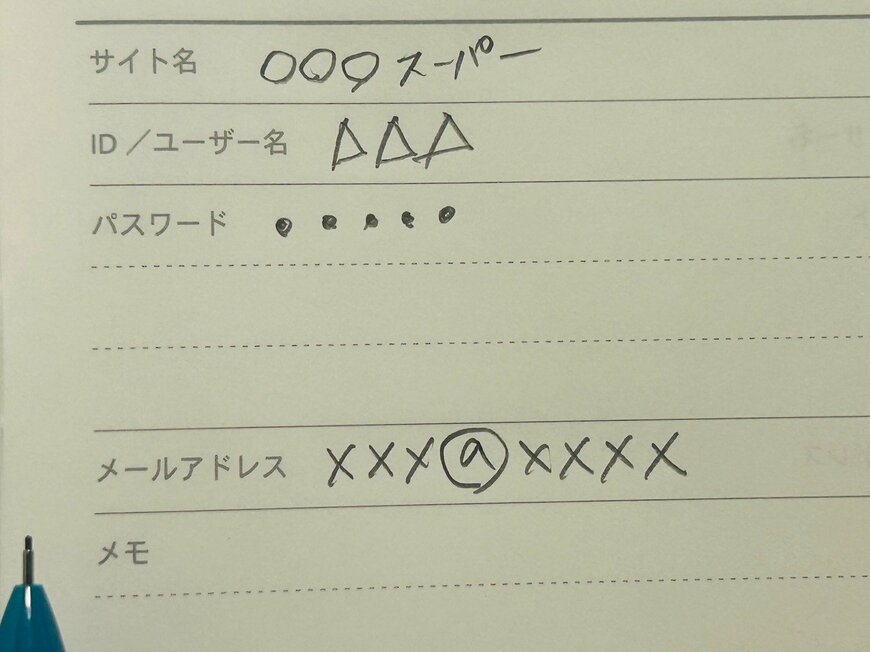 サイト名 〇〇〇スーパー
ID／ユーザー名 △△△
パスワード ● ● ● ● ●
メールアドレス ×××@××××
メモ